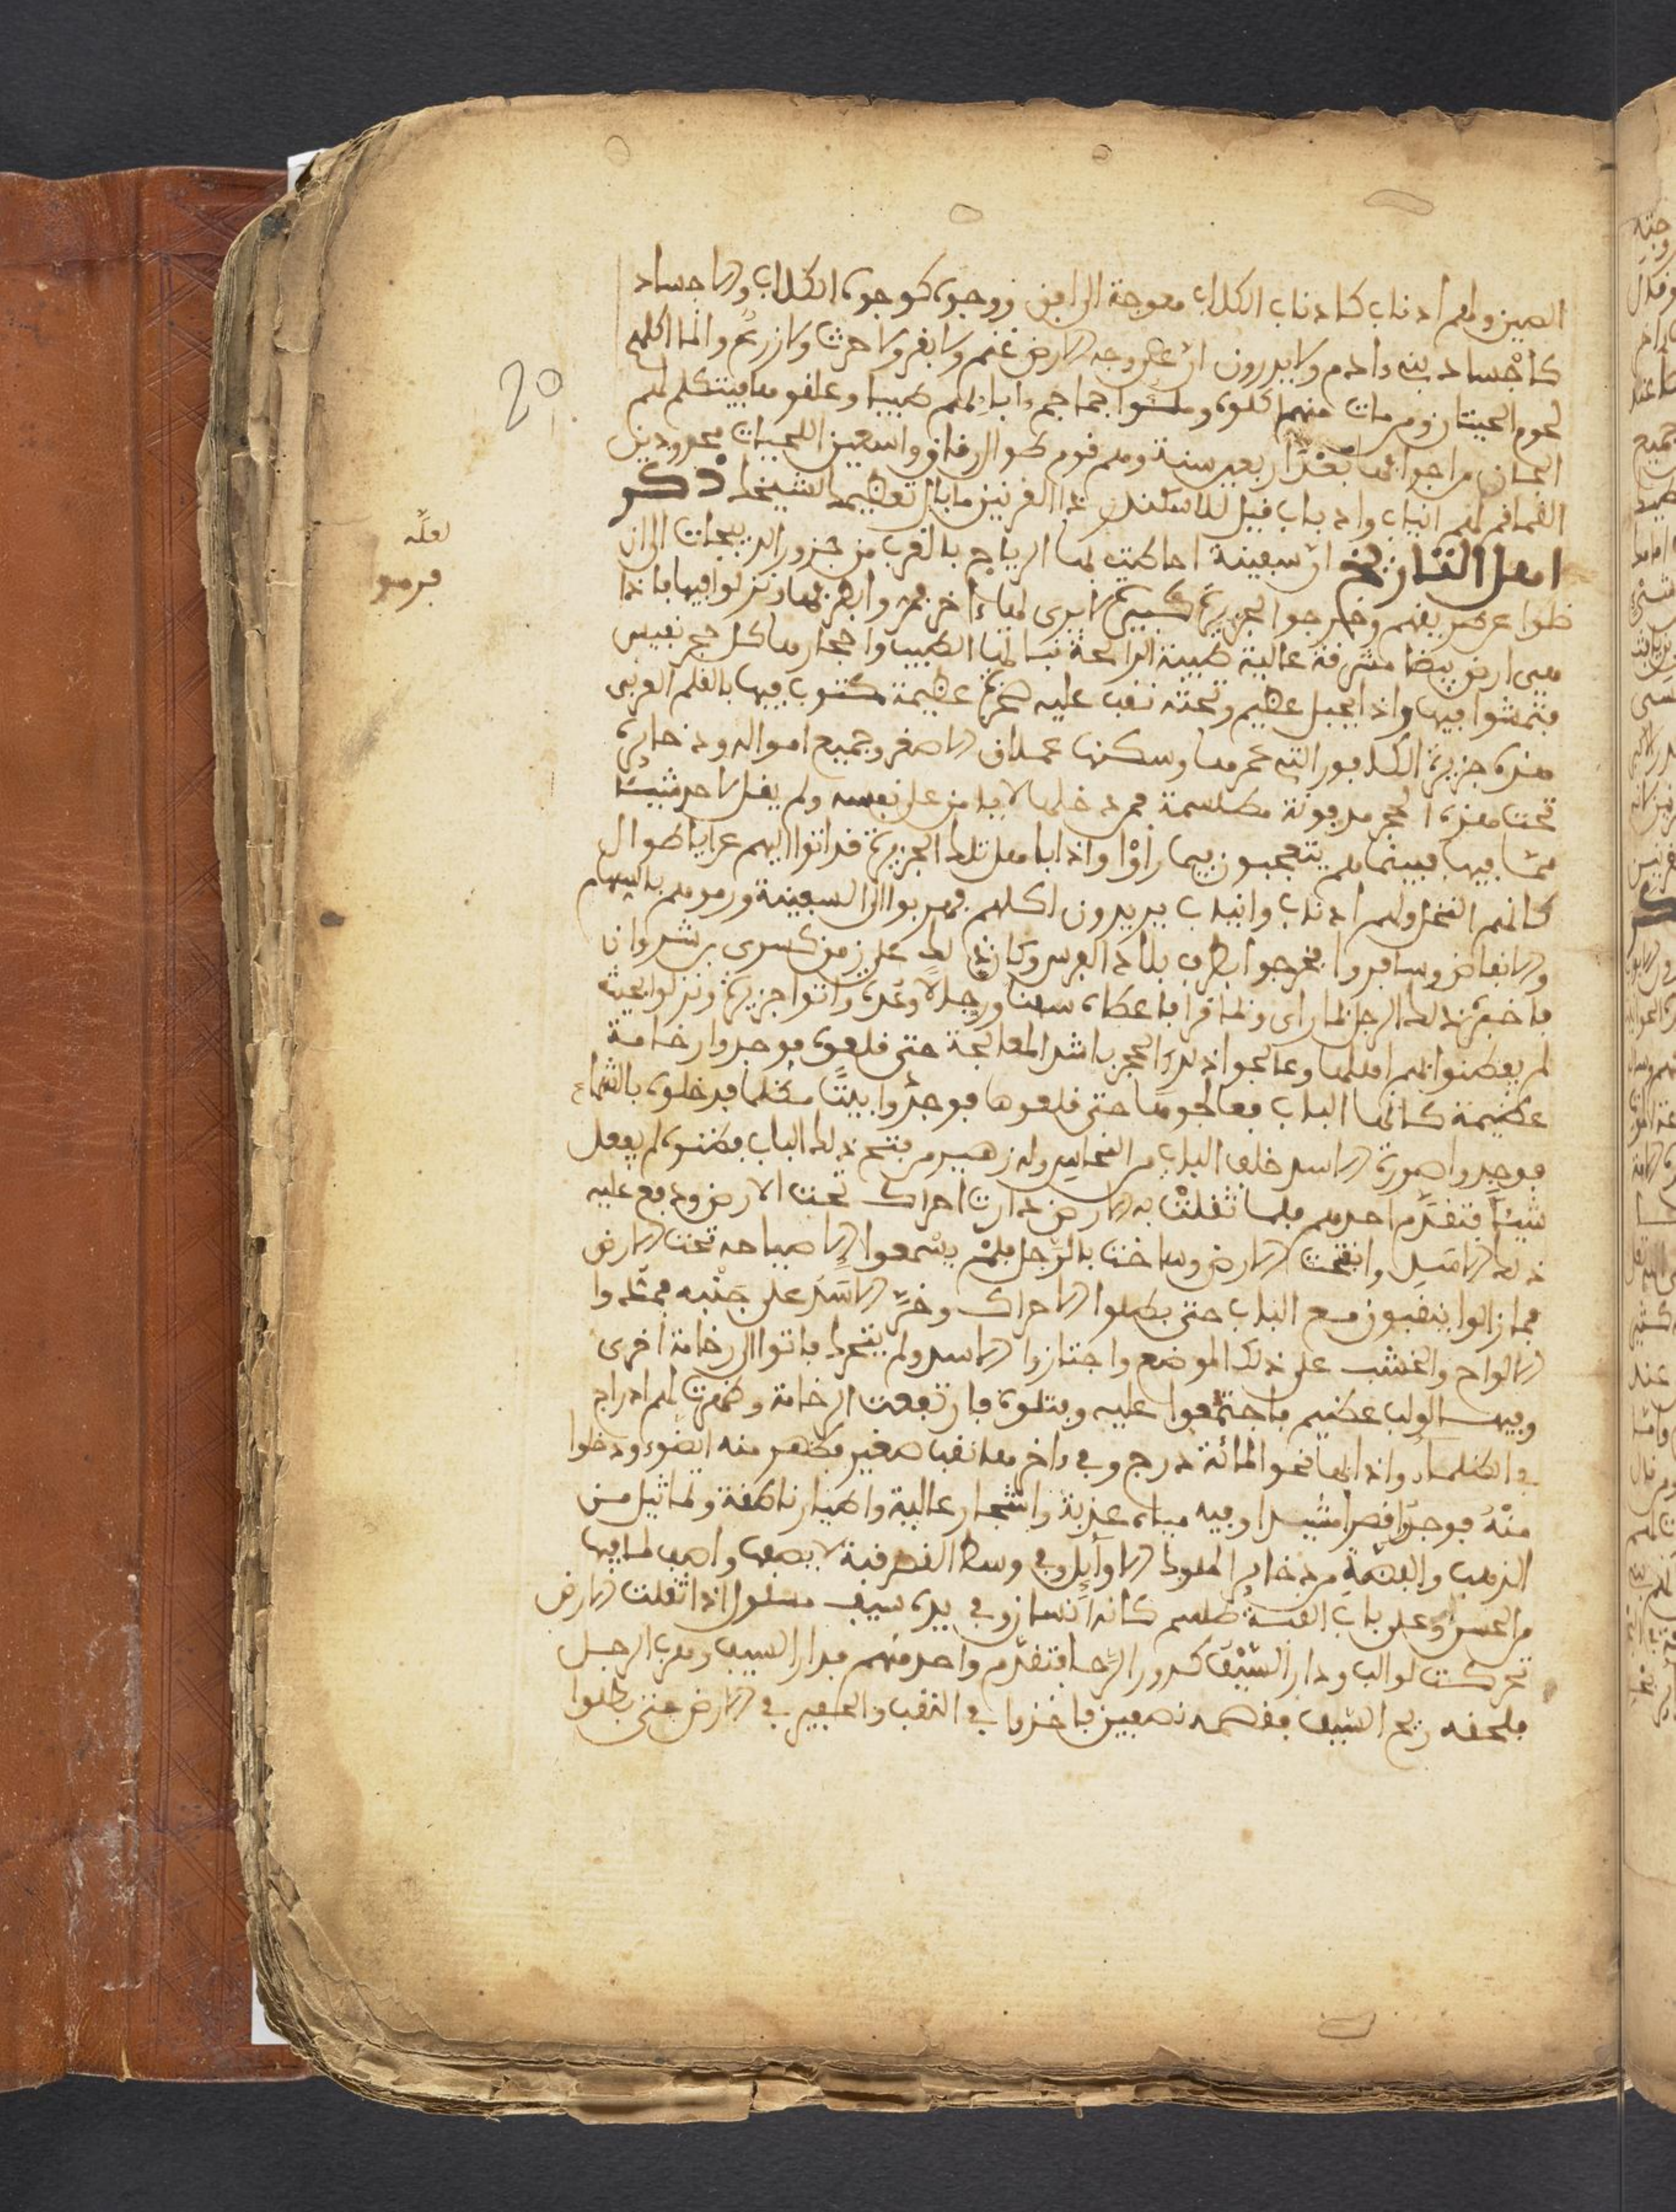 الصين ولهم اذناب كاذناب الكلاب معوجة الى ووجوه كوجوه الكلاب والاجساد
كاجْساد بنى ءادم ولا يدرون ان على وجه الارض غنم ولا بقر ولا حرث ولا زرع وانما اكلهم
لحوم الحيتان ومن مات منهم اكلوه جماجم ءابائهم طيبا وعلقوها فيتكلم لهم
الجان من اجوافها بَعْدَ اربعين سنة وهم قوم طوال رقاق واسعين اللحيات
لهم انياب واذناب قبل للاسكندر ذا القرنين ما بال تعظيمك الشيخ ذكر
اهل التاريخ ان سفينة احاطت لها الرياح بالقرب من جزور الديبجات الى ان
ظلوا عن طريقهم وخرجوا لجزيرة كبيرة لا يرى لها ءاخر فنزلوا فيها فاذا
هى ارض بيضا مشرفة عالية طيبة الرائحة نباتها الطيب واحجارها كل حجر نفيس
فتمشوا فيها واذا بجبل عظيم وتحته نقب عليه صخرة عظيمة مكتوب فيها بالقلم العربى
هذه جزيرة التى عمرها وسكنها عملاق الاصغر وجميع امواله وذخايره
تحت هذه الحجر مدفونة مطلسمة فمن دخلها لا يامن على نفسه ولم يقل احد شيئا
ممّا فيها فبينما هم يتعجبون فيما رأوْا واذا باهل تلك الجزيرة قد اتوا اليهم عرايا طوال
كانهم النخل ولهم اذناب وانياب يريدون اكلهم فهربوا الى السفينة ورموهم بالسهام
وسافروا فخرجوا بطرف بلاد الفرس وكان ذلك على زمن كسرى بن شروان
فاخبره ذلك الرجل بما راى وبما قرا فاعطاه سفنا ورجالا وعُدة واتوا جزيرة ونزلوا بحيث
لم يفطنوا بهم اهلها وعالجوا ذلك الحجر باشد المعالجة حتى قلعوه فوجدوا رخامة
عظيمة كانها الباب فعالجوها حتى قلعوها فوجدُوا بيتًا مظلما فدخلوه بالشماع
فوجدوا صورة الاسد خلف الباب من النحاس وله زهير من فتح ذلك الباب فظنوه لم يفعل
شيئًا فتقدَّم احدهم فلما ثقلتْ به الارض دارت احراك تحت الارض ودفع عليه
ذلك الاسَد وانفتحت الارض وساخت بالرَّجل فلمْ يسْمعوا الا صياحه تحت الارض
فما زالوا ينقبون مع الباب حتى بطلوا الاحراك وخرّ الاسَد على جَنْبه فمدوا
الالواح والخشب على ذلك الموضع واجتازوا الاسد ولم يتحرك فاتوا الى رخامة اخرى
وفيها لولب عظيم فاجتمعوا عليه وفتلوه فارتفعت الرخامة وظهرت لهم ادراج
فى الظلمات واذا بها نحو المائة درج وفى ءاخرها نقب صغير فظهر منه الضوء ودخلوا
منْهُ فوجدوا قصرا مشيدا وفيه مياه عذبة واشجار عالية واطيار ناطقة وتماثيل من
الذهب والفضّة من ذخاير الملوك الاوايل وفى وسط القصر قبة لا يصفها واصف لما فيها
من الحسن وعلى باب القبة طلسم كانه انسان وفى يده سيف مسلول اذا ثقلت الارض
تحركت لوالب ودار السَّيْف كدور الرَّحا فتقدّم واحد منهم فدار السيف وهرب الرجل
فلحقه ريح السّيف فقصمه نصفين فاخذوا فى النقب والحفير فى الارض حتى بطلوا
20
لعلّه